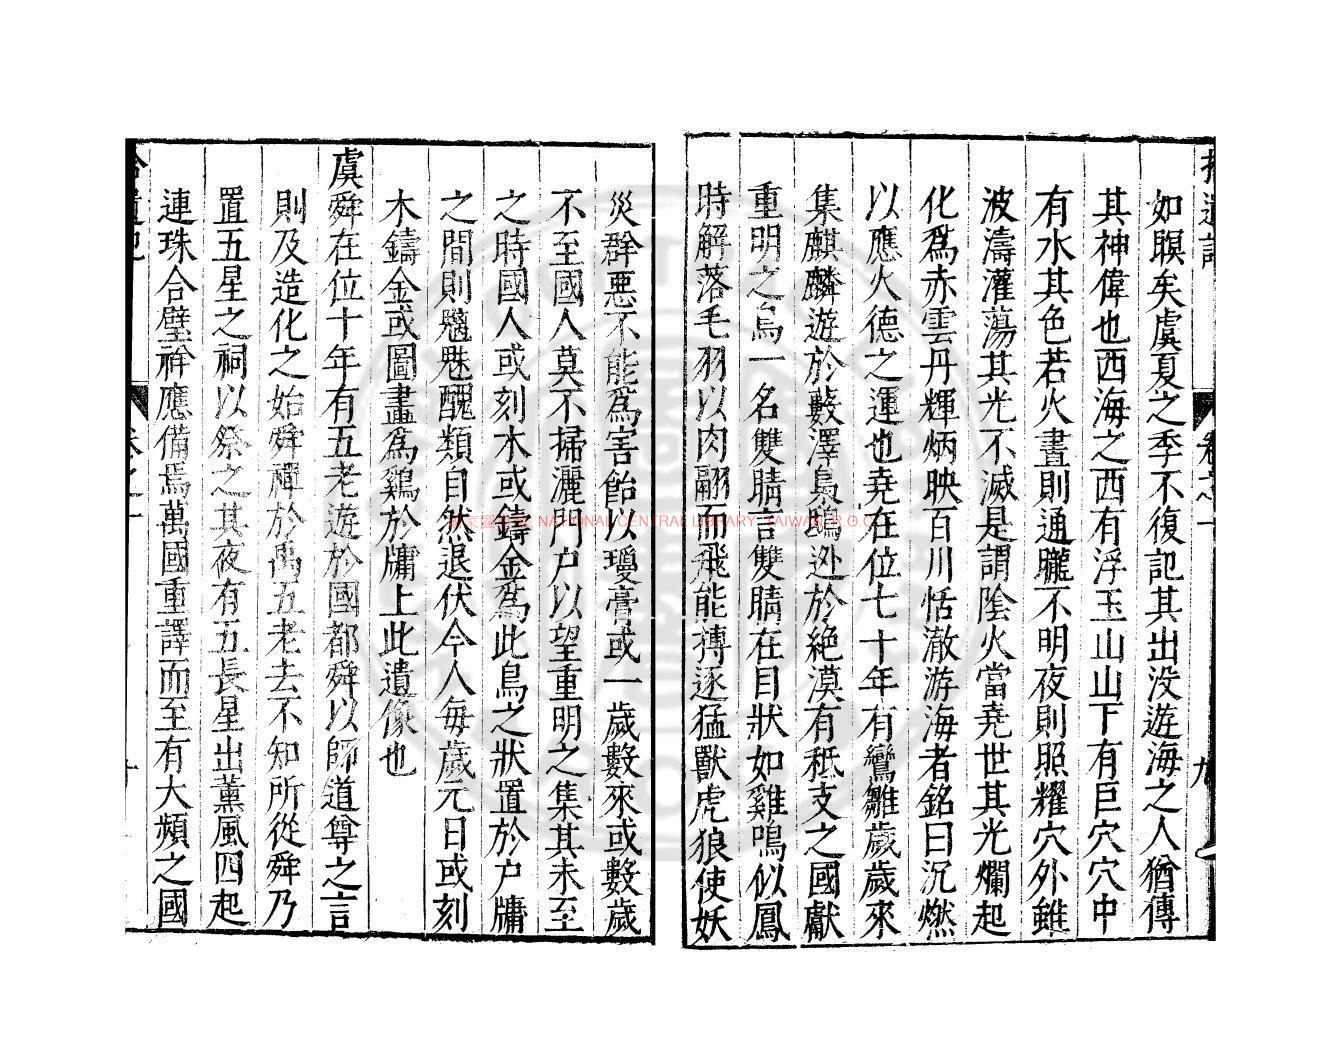 如瞑矣虞夏之季不復記其出没遊海之人猶傳
其神偉也西海之西有浮玉山山下有巨穴穴中
有水其色若火晝則通曨不明夜則照耀穴外雖
波濤灌蕩其光不滅是謂陰火當堯世其光爛起
化爲赤雲丹輝炳映百川恬澈游海者銘曰沉燃
以應火德之運也堯在位七十年有鸞雛歲歲來
集麒麟遊於藪澤梟鴟迯於絶漠有秪支之國獻
重明之鳥一名雙睛言雙睛在目狀如雞鳴似鳳
時解落毛羽以肉翮而飛能搏逐猛獸虎狼使妖
災群惡不能爲害飴以瓊膏或一歲數來或數歲
不至國人莫不掃灑門户以望重明之集其未至
之時國人或刻木或鑄金爲此鳥之狀置於户牖
之間則魑魅醜類自然退伏今人毎歲元日或刻
木鑄金或圖畫爲鷄於牖上此遺像也
虞舜在位十年有五老遊於國都舜以師道尊之言
則及造化之始舜禪於禹五老去不知所從舜乃
置五星之祠以祭之其夜有五長星出薰風四起
連珠合璧祥應備焉萬國重譯而至有大頻之國
拾遺記 卷之一 九
國家圖書館 NATIONAL CENTRAL LIBRARY, TAIWAN, R.O.C.